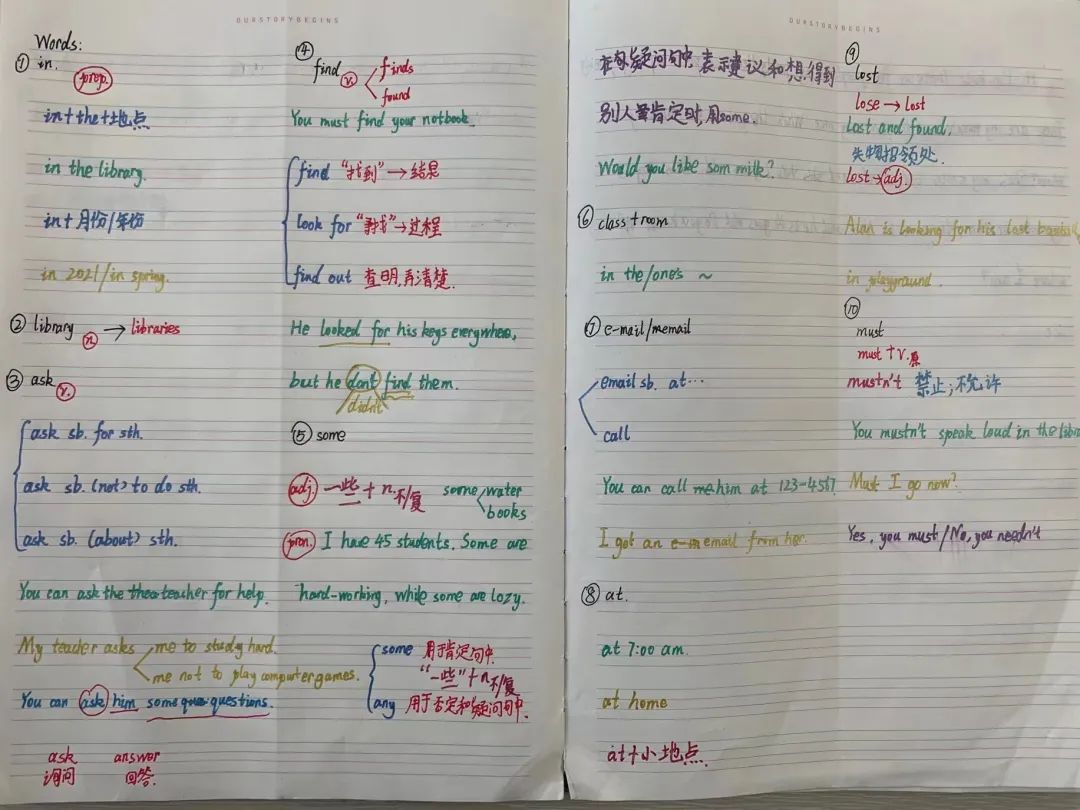 OURSTORYBEGINS
Words:
① in.
prep.
in+the+地点
in the library.
in+月份/年份
in 2021/in spring.
② library n. → libraries
③ ask v.
ask sb. for sth.
ask sb. (not) to do sth.
ask sb. (about) sth.
You can ask the teacher for help.
My teacher asks me to study hard.
me not to play computer games.
You can ask him some questions.
ask answer
询问 回答.
④
find v. finds
found
You must find your notbook.
find "找到"→结果
look for "寻找"→过程
find out 查明,弄清楚.
He looked for his keys everywhere,
but he don't find them.
didn't
⑤ some
adj. 一些+n.不/复 some water
books
pron. I have 45 students. Some are
hard-working, while some are lozy.
some 用于肯定句中.
"一些"+n.不/复
any 用于否定和疑问句中.
OURSTORYBEGINS
疑问句中,表示建议和想得到
别人肯定时,用some.
Would you like som milk?
⑥ class+room
in the/one's ~
⑦ e-mail/memail
email sb. at…
call
You can call him at 123-4567
I got an email from her.
⑧ at.
at 7:00 am.
at home
at+小地点.
⑨
lost
lose → lost
Lost and found.
失物招领处.
lost→adj.
Alan is looking for his lost
in playground.
⑩
must
must+v.原
mustn't 禁止;不允许
You mustn't speak loud in the
Must I go now?
Yes, you must/No, you needn't